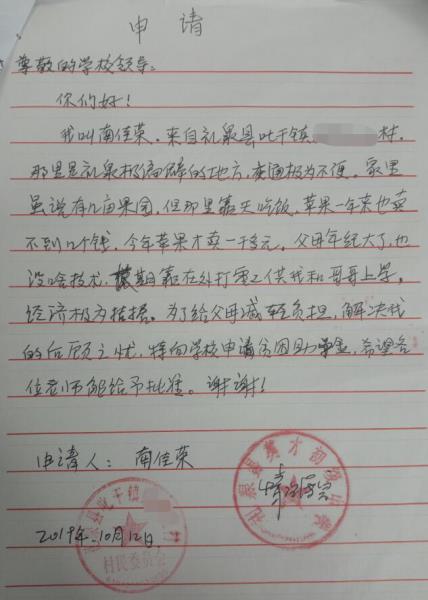 申请
尊敬的学校领导:
你们好!
我叫南佳荣。来自礼泉县叱干镇 村,
那里是礼泉极偏僻的地方,交通极为不便。家里
虽说有几亩果园,但那里靠天吃饭,苹果一年来也卖
不到几个钱,今年苹果才卖一千多元。父母年纪大了,也
没啥技术,长期靠在外打零工供我和哥哥上学,
经济极为拮据。为了给父母减轻负担,解决我
的后顾之忧,特向学校申请贫困助学金,希望各
位老师能给予批准。谢谢!
申请人: 南佳荣
2019年.10月12日.
礼泉县叱干镇
村民委员会
礼泉县英才初级中学
情况属实